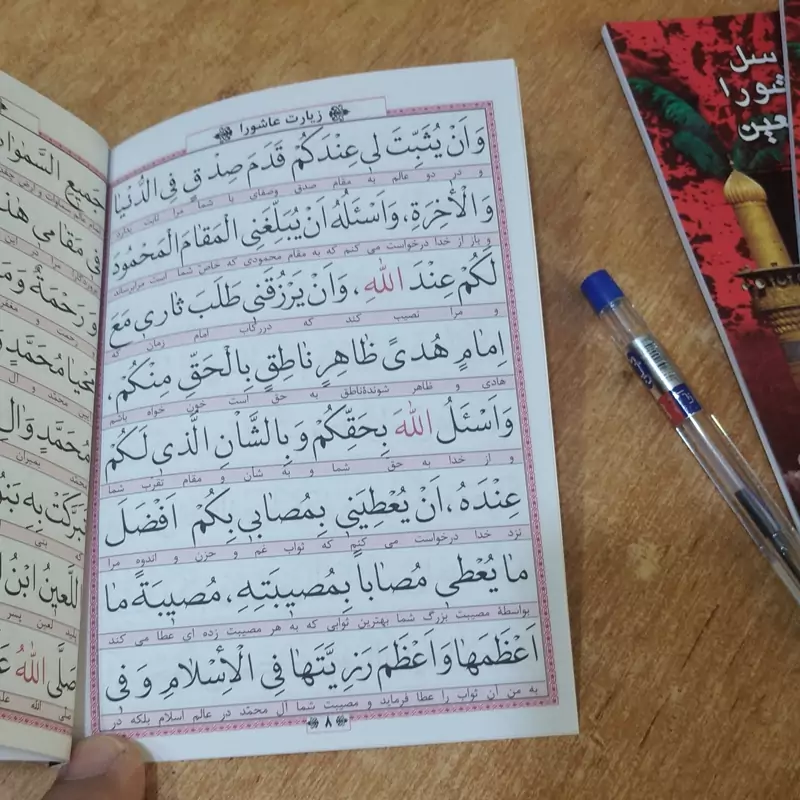 زیارت عاشورا
وَاَنْ يُثَبِّتَ لی عِنْدَكُمْ قَدَمَ صِدْقٍ فِی الدُّنْیٰا
و در دو عالم به مقام صدق وصفای با شما مرا ثابت بدارد
وَ الْأٰخِرَةِ، وَاَسْئَلُهُ اَنْ يُبَلِّغَنِی الْمَقٰامَ الْمَحْمُودَ
و باز از خدا درخواست می کنم که به مقام محمودی که خاص شما است مرابرساند
لَكُمْ عِنْدَ اللّٰهِ، وَاَنْ يَرْزُقَنی طَلَبَ ثٰاری مَعَ
و مرا نصیب کند که دررکاب امام زمان که
اِمٰامٍ هُدیً ظٰاهِرٍ نٰاطِقٍ بِالْحَقِّ مِنْكُمْ،
هادی و ظاهر شوندهٔناطق به حق است خون خواه باشم
وَاَسْئَلُ اللّٰهَ بِحَقِّكُمْ وَ بِالشَّاْنِ الَّذی لَكُمْ
و از خدا به حق شما و به شان و مقام تقرب شما
عِنْدَهُ، اَنْ يُعْطِیَنی بِمُصٰابی بِكُمْ اَفْضَلَ
نزد خدا درخواست می کنم که ثواب غم و حزن و اندوه مرا
مٰا يُعْطی مُصٰاباً بِمُصیبَتِهِ، مُصیبَةً مٰا
بواسطهٔ مصیبت بزرگ شما بهترین ثوابی که به هر مصیبت زده ای عطا می کند
اَعْظَمَهٰا وَ اَعْظَمَ رَزِیَّتَهٰا فِی الْاِسْلٰامِ وَ فی
به من آن ثواب را عطا فرماید و مصیبت شما آل محمّد در عالم اسلام بلکه در
۸
جَمیعِ السَّمٰوٰاتِ
فی مَقٰامی هٰذٰا
وَ رَحْمَةٌ وَ
مُحَمَّدٍ
مُحَمَّدٍ وَاٰلِ
تَبَرَّكَتْ بِهِ بَنُو
اللَّعینُ ابْنُ
صَلَّی اللّٰهُ